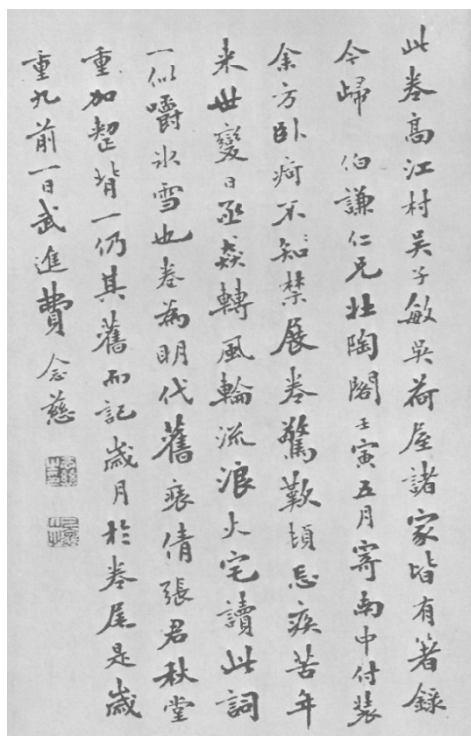 此卷高江村吳子敏吳荷屋諸家皆有著錄
今歸 伯謙仁兄壯陶閣壬寅五月寄南中付裝
余方臥疴不知展卷驚歎頓忘疾苦年
來世變日亟焱轉風輪流浪火宅讀此詞
一似嚼冰雪也卷為明代舊倩張君秋堂
重加整背一仍其舊而記歲月於卷尾是歲
重九前一日武進費念慈